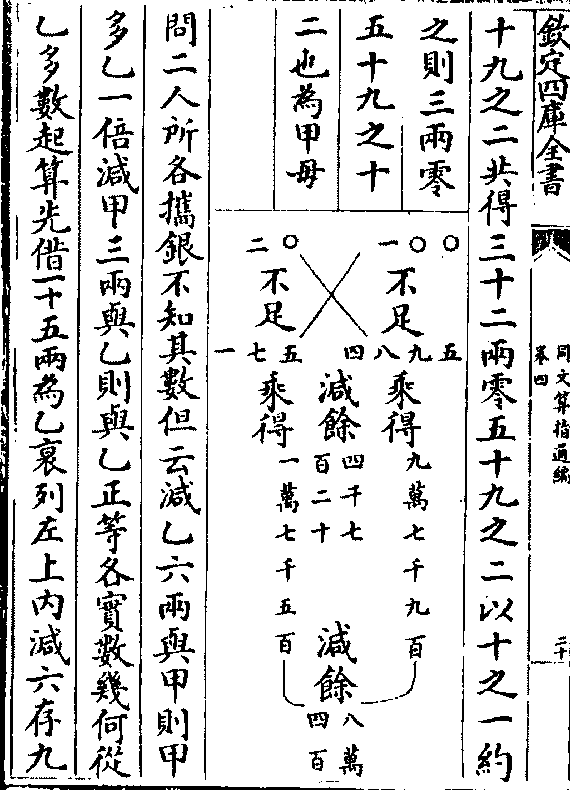 欽定四庫全書
同文算指通編
卷四
二十
十九之二共得三十二兩零五十九之二以十之一約
之則三兩零
五十九之十
二也為甲毋
一〇〇
不足
四八九五
乘得
九萬七千九百
減餘
四千七
百二十
減餘
八萬
四百
二〇
不足
一七五
乘得
一萬七千五百
問二人所各攜銀不知其數但云減乙六兩與甲則甲
多乙一倍減甲三兩與乙則與乙正等各實數幾何從
乙多數起算先借一十五兩為乙衰列左上內減六存九